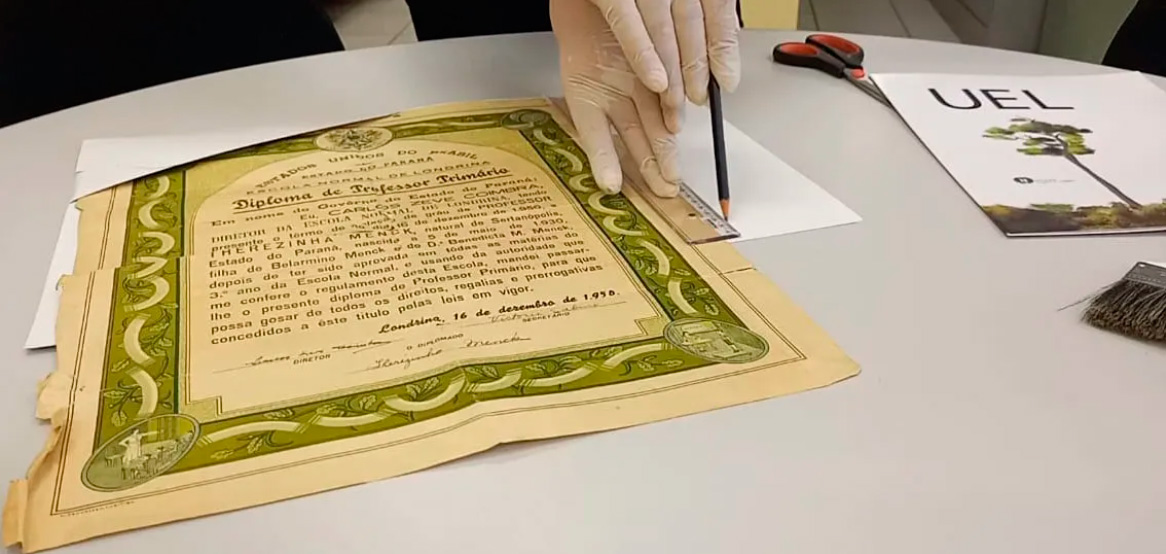 ESTADOS UNIDOS DO BRASIL
ESTADO DO PARANÁ
ESCOLA NORMAL DE LONDRINA
Diploma de Professor Primário
Em nome do Govêrno do Estado do Paraná,
Eu, CARLOS ZEVE COIMBRA,
DIRETOR DA ESCOLA NORMAL DE LONDRINA, tendo
presente o têrmo de do gráu de PROFESSOR
THEREZINHA MENCK, natural de Sertanópolis,
Estado do Paraná, nascida a 5 de maio de 1930
filha de Belarmino Menck e de D.ª Benedicta R. Menck,
depois de ter sido aprovada em tôdas as matérias do
3.º ano da Escola Normal, e usando da autoridade que
me confere o regulamento desta Escola, mandei passar-
lhe o presente diploma de Professor Primário, para que
possa gosar de todos os direitos, regalias e prerrogativas
concedidos a êste título pelas leis em vigor.
Londrina, 16 de dezembro de 1950.
SECRETÁRIO
DIRETOR
O DIPLOMADO
Therezinha Menck
UEL